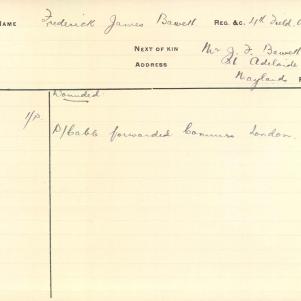 NAME Frederick James Bawett REG. &C. 4th Field A
NEXT OF KIN Mr J. F. Bawett
ADDRESS St Adelaide
Maylands
Wounded
P/Cable forwarded Commrs London.